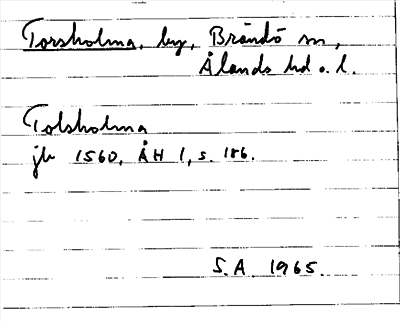 Torsholma, by, Brändö sn,
Ålands hd o. l.
Tolsholma
jb 1560, ÅH 1, s. 186.
S.A. 1965.